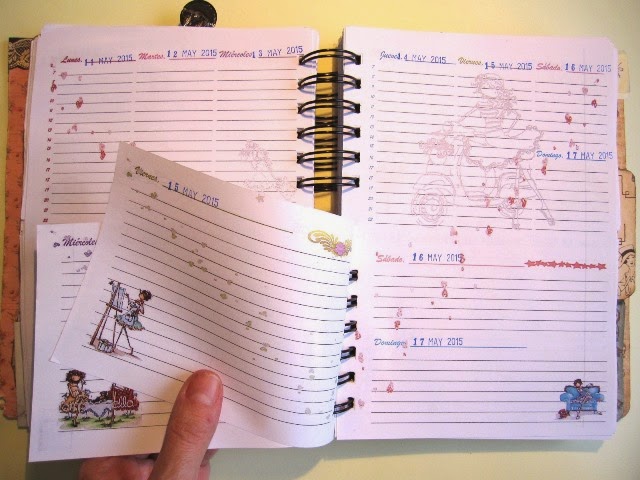 Lunes, 11 MAY 2015
Martes, 12 MAY 2015
Miércoles, 13 MAY 2015
Jueves, 14 MAY 2015
Viernes, 15 MAY 2015
Sábado, 16 MAY 2015
Domingo, 17 MAY 2015
Miércoles
Viernes, 15 MAY 2015
Sábado, 16 MAY 2015
Domingo, 17 MAY 2015